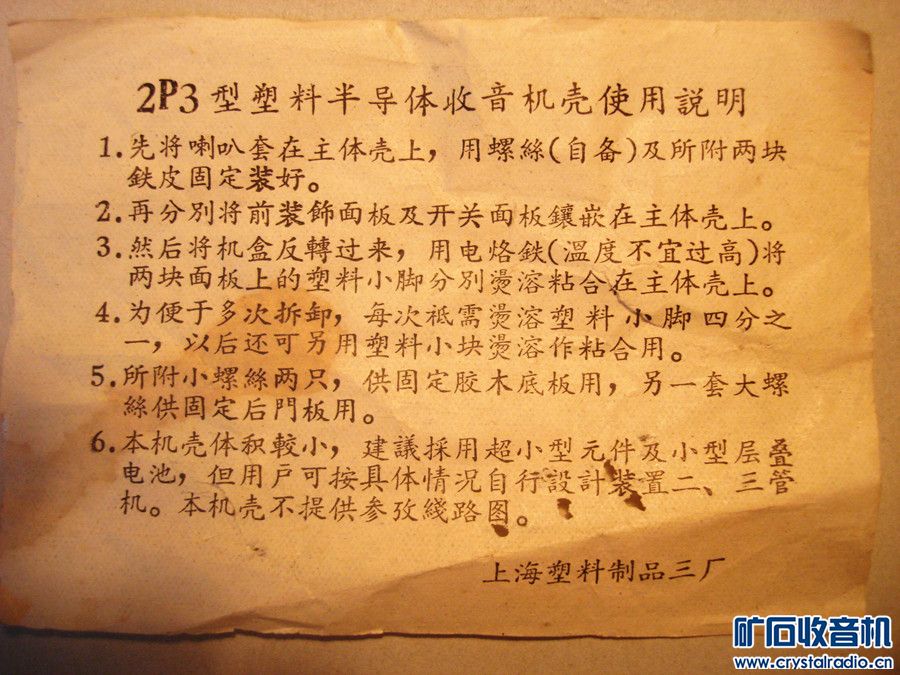 2P3型塑料半导体收音机壳使用説明
1.先将喇叭套在主体壳上，用螺絲(自备)及所附两块
鉄皮固定装好。
2.再分别将前装飾面板及开关面板鑲嵌在主体壳上。
3.然后将机盒反轉过来，用电烙鉄(溫度不宜过高)将
两块面板上的塑料小脚分别燙溶粘合在主体壳上。
4.为便于多次拆卸，每次祇需燙溶塑料小脚四分之
一，以后还可另用塑料小块燙溶作粘合用。
5.所附小螺絲两只，供固定胶木底板用，另一套大螺
絲供固定后門板用。
6.本机壳体积較小，建議採用超小型元件及小型层叠
电池，但用户可按具体情况自行設計装置二、三管
机。本机壳不提供参孜綫路图。
上海塑料制品三厂
矿石收音机
www.crystalradio.cn